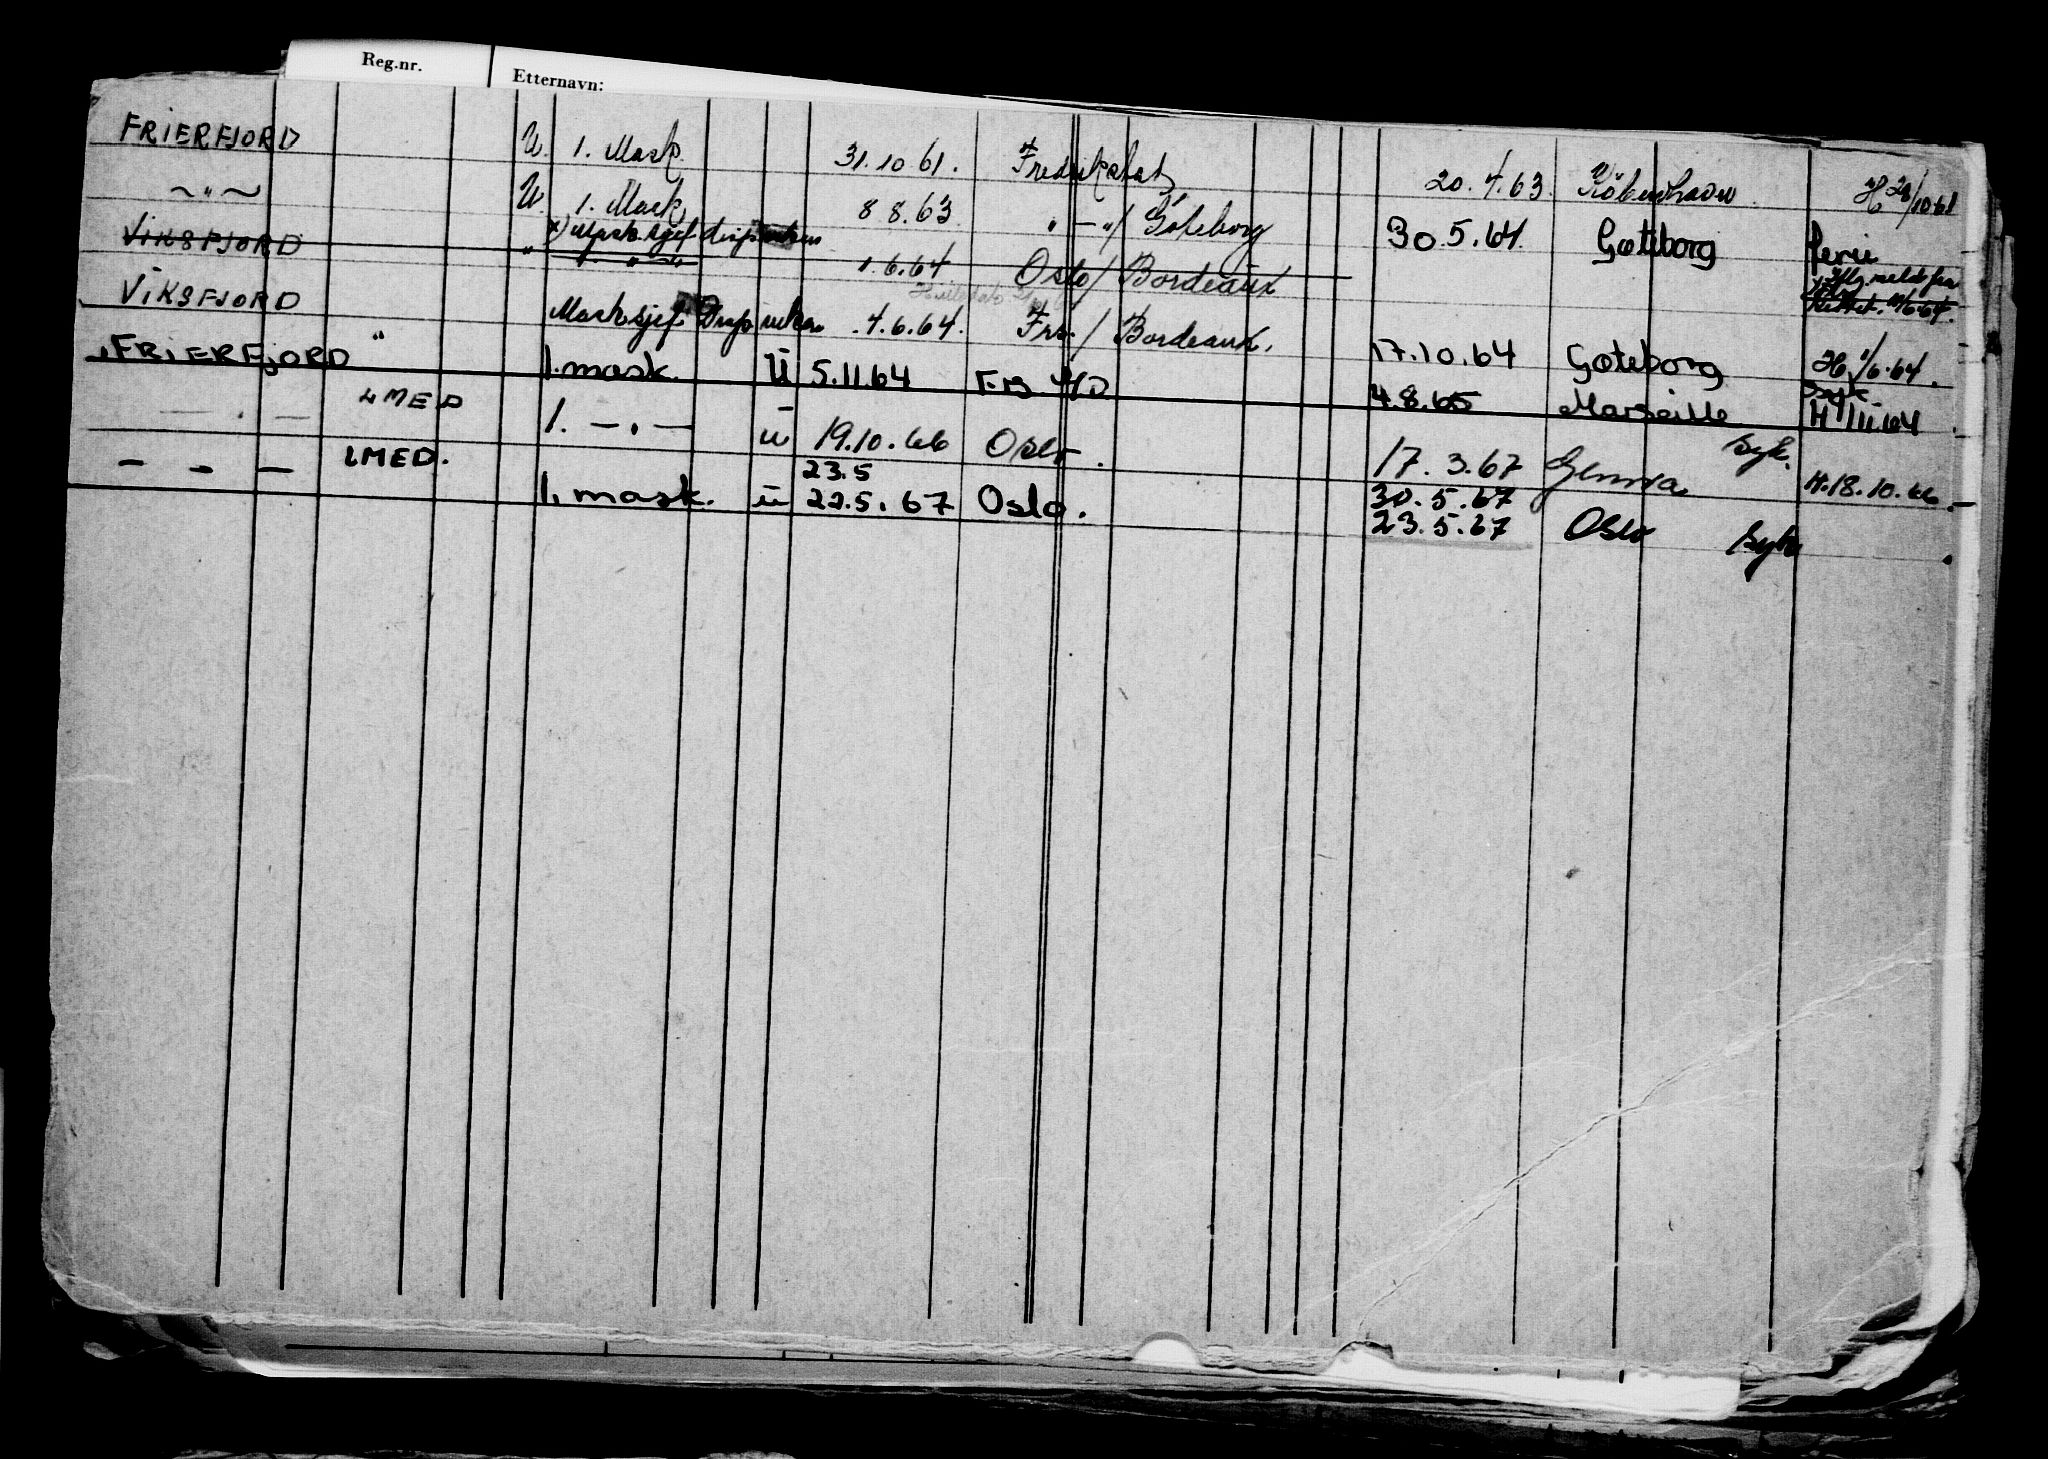 Reg.nr. Etternavn:
FRIERFJORD U. 1. Mask. 31.10 61. Fredrikstat 20.4.63. Köbenhavn H 28/10 61
~ " ~ U. 1. Mask 8 8.63 " - "/ Göteborg 30.5.64 Gøteborg ferie
VIKSFJORD " x) Mask.sjef
" 1.6.64 Oslo / Bordeaux
VIKSFJORD " Mask.sjef Disp 4.6.64. Frs. / Bordeaux. 17.10.64 Gøteborg H 1/6.64.
FRIERFJORD 1. mask. U 5.11.64 4.8.65 Marseille
— . — 4 MED 1. — . — U 19.10.66 Oslo. 17.3.67 Genova syk. H.18.10.66
— — — LMED. 23.5 30.5.67
1. mask. U 22.5.67 Oslo. 23.5.67 Oslo syk